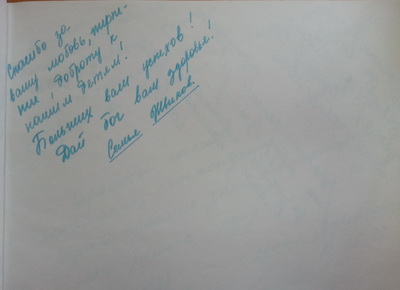 Спасибо за
вашу любовь, терпе-
ние! доброту к
нашим детям!
Больших вам успехов!
Дай бог вам здоровья!
Семья